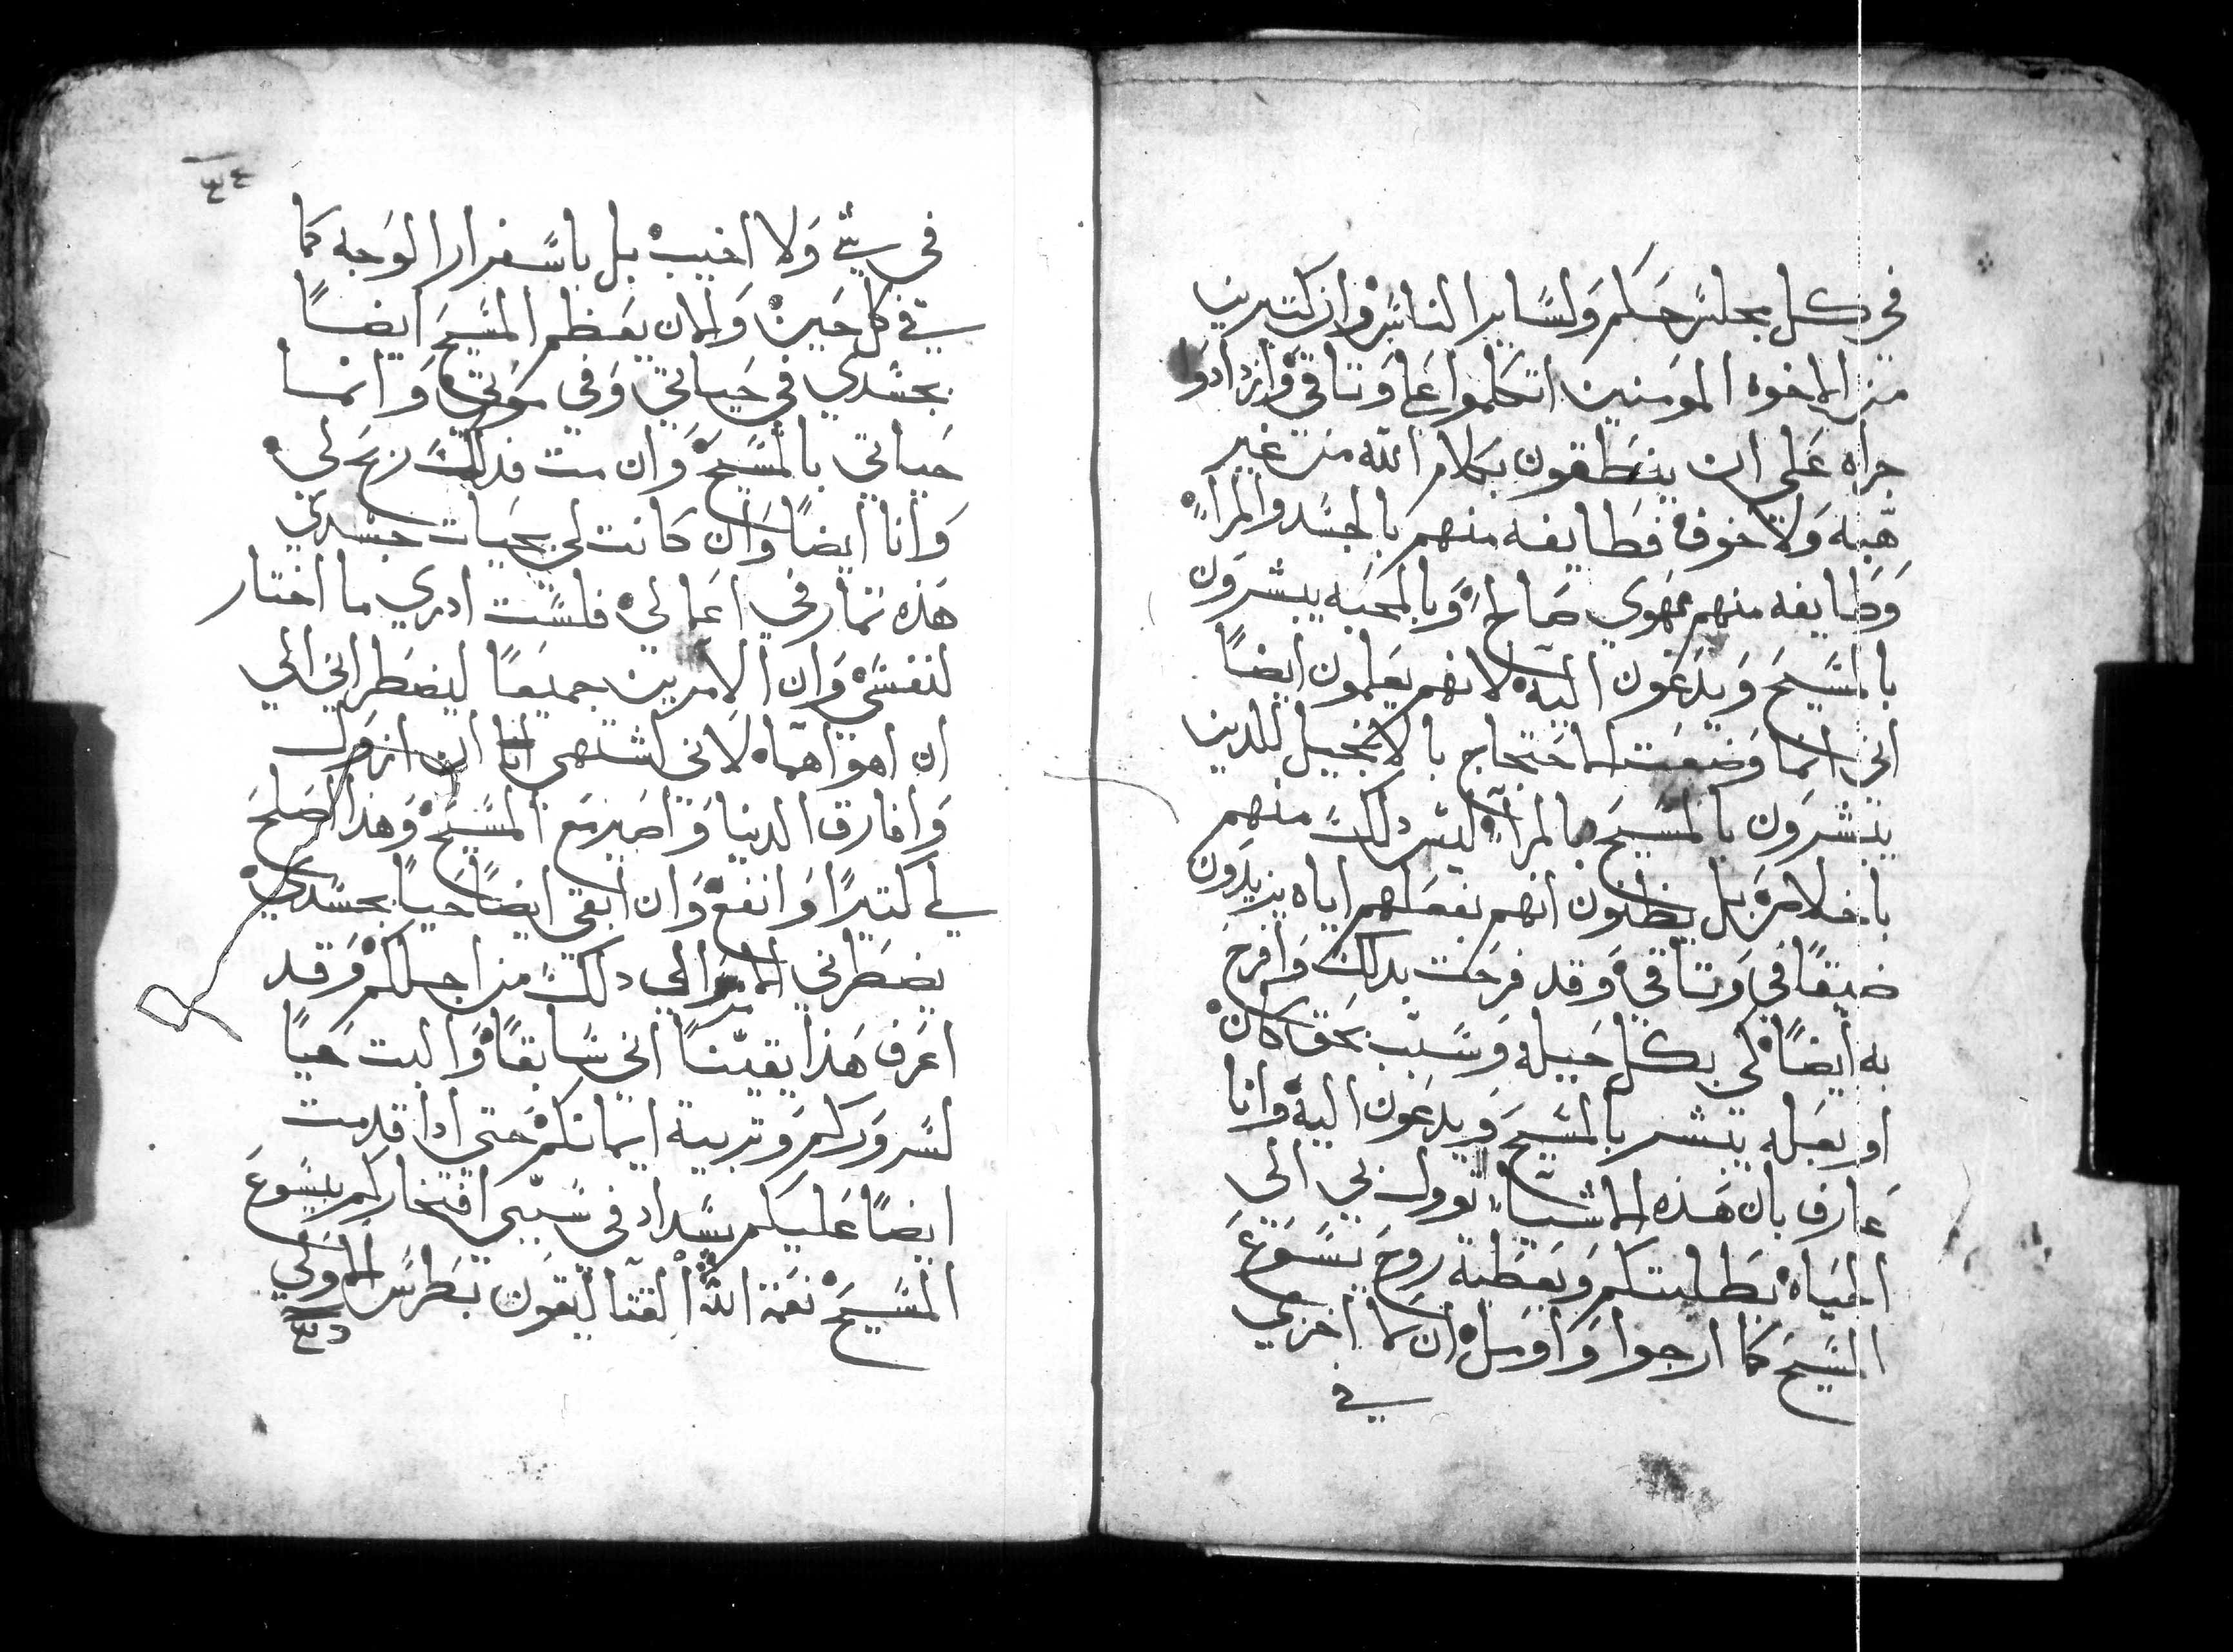 في كل مجلس حكم ولساير الناس وان كتيرين
من الاخوه المومنين اتكلموا على وتاقي وازدادوا
جراه على ان ينطقون بكلام الله من غير
هيبه ولا خوف فطايفه منهم بالحسد والمرآ
وطايفه منهم بهوي صالح وبالمحبه يبشرون
بالمسيح ويدعون اليه لانهم يعلمون ايضاً
اني انما وضعت للاحتجاج بالانجيل للدين
يبشرون بالمسيح بالمرآ ليس دلك منهم
باخلاص بل يظنون انهم بفعلهم اياه يزيدون
ضيقاً في وتاقي وقد فرحت بدلك وافرح
به ايضاً لي بكل حيله وسبب بحق كان
او بعله يبشر بالمسيح ويدعون اليه وانا
عارف بان هذه الاشياء توول بي الي
الحياه بطلبتكم وبعطية روح يسوع
المسيح كما ارجوا واومل ان لا اخزي
في
٣٤
في شي ولا اخيب بل باسفرار الوجه كما
في كل حين والان يعظم المسيح ايضاً
بجسدي في حياتي وفي موتي وانما
حياتي بالمسيح وان مت فدلك ربح لي
وانا ايضاً وان كانت لي بحيات جسدي
هذه تمار في اعمالي فلست ادري ما اختار
لنفسي وان الامرين جميعاً ليضطراني الي
ان اهواهما لاني اشتهي انا ان ازول
وافارق الدنيا واصير مع المسيح وهذا اصلح
لي كتيراً وانفع وان ابقي ايضاً حياً بجسدي
يضطرني الامر الي دلك من اجلكم وقد
اعرف هذا يقيناً اني سابقاً والبت حياً
لسروركم وتربية ايمانكم حتي ادا قدمت
ايضاً عليكم يزداد في سببي افتخاركم بيسوع
المسيح نعمة الله القتاليقون بطرس الاولي